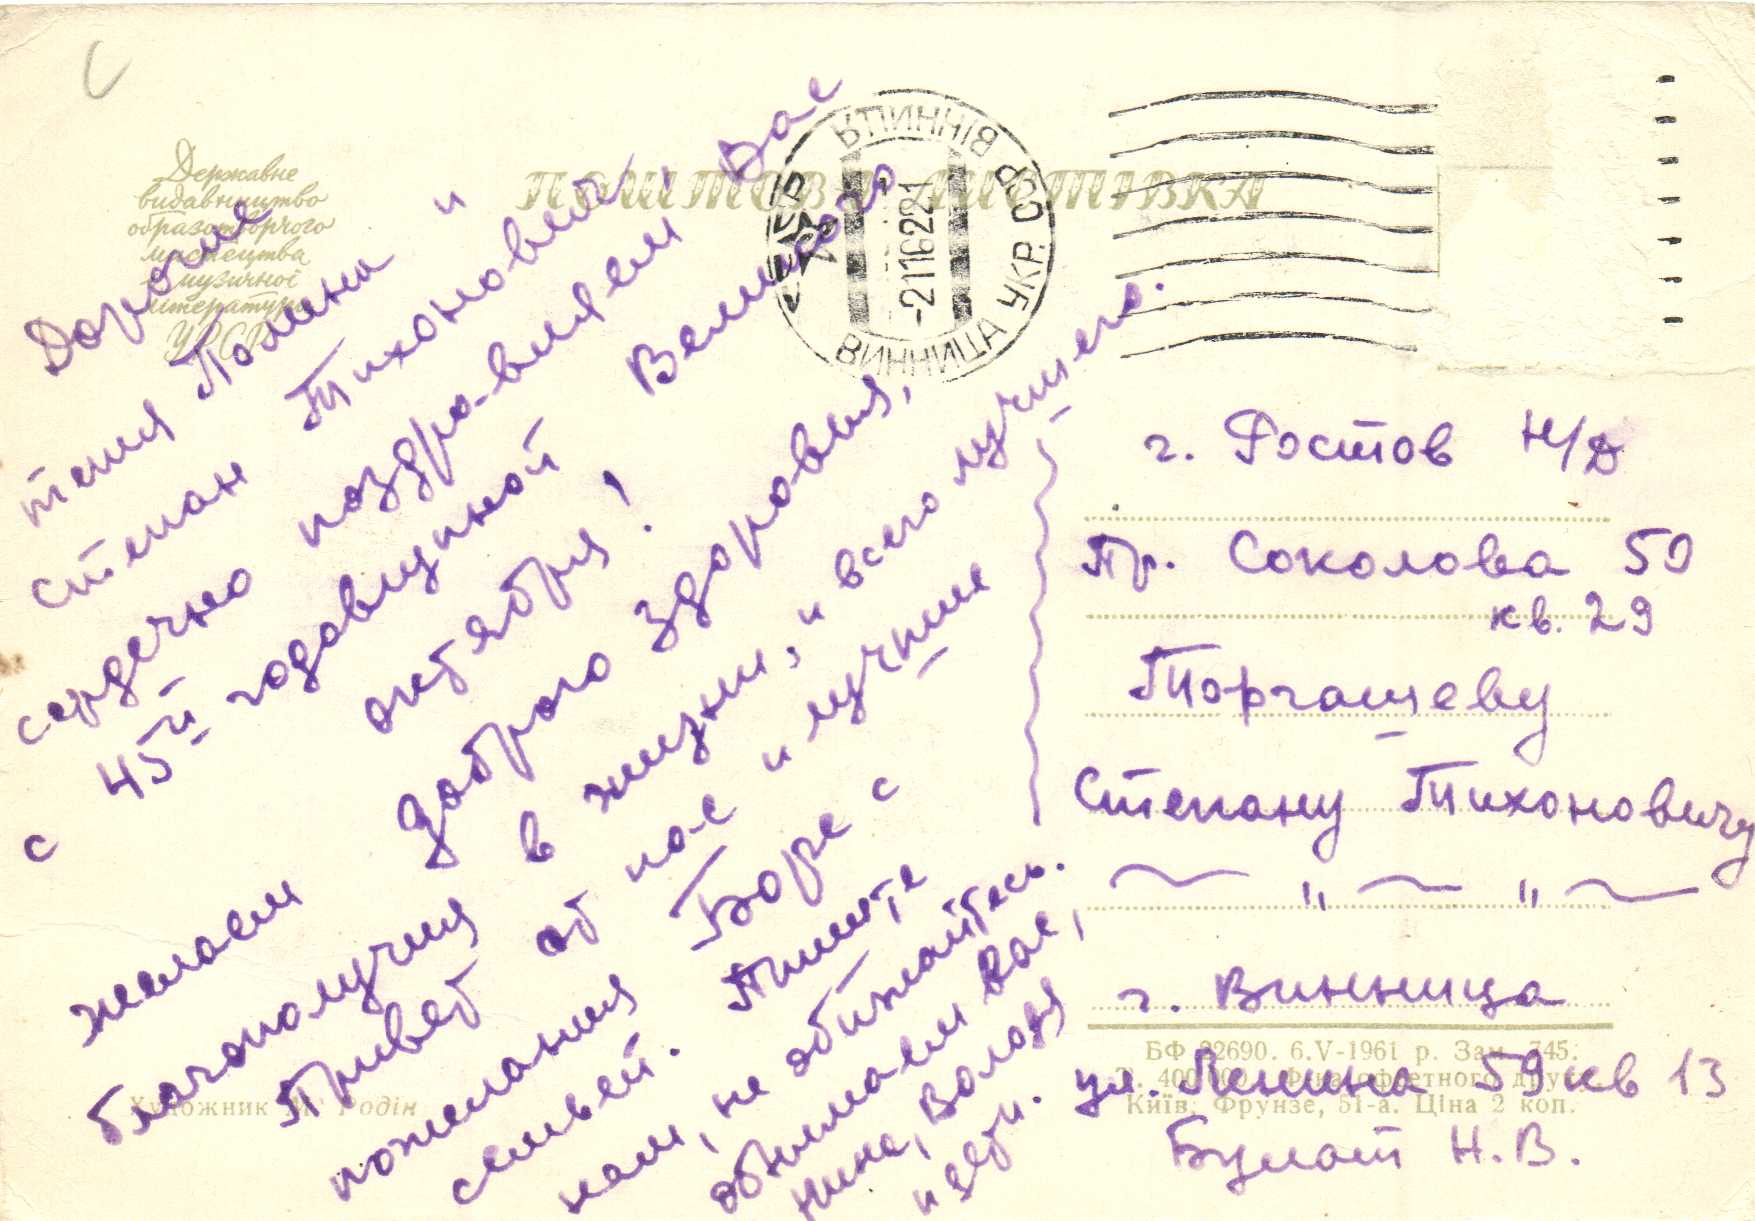 Державне
видавництво
образотворчого
мистецтва
музичної
літератури
УРСР
ПОШТОВА ЛИСТІВКА
ВІННИЦЯ
СССР
-21116221
ВИННИЦА УКР. ССР
Дорогие
тетя Полина "
Степан Тихонович, Вас
сердечно поздравляем
с 45й годовщиной Великого
октября!
желаем доброго здоровья,
благополучия в жизни, " всего лучшего.
Привет от нас " лучшие
пожелания Боре с
семьей. Пишите
нам, не обижайтесь.
обнимаем вас,
Нина, Володя
и дети.
г. Ростов н/Д
Пр. Соколова 59
кв. 29
Торгашеву
Степану Тихоновичу
г. Винница
ул. Ленина 59 кв 13
Булат Н.В.
БФ 22690. 6.V-1961 р. Зам. 745.
Київ, Фрунзе, 51-а. Ціна 2 коп.
Художник Родін